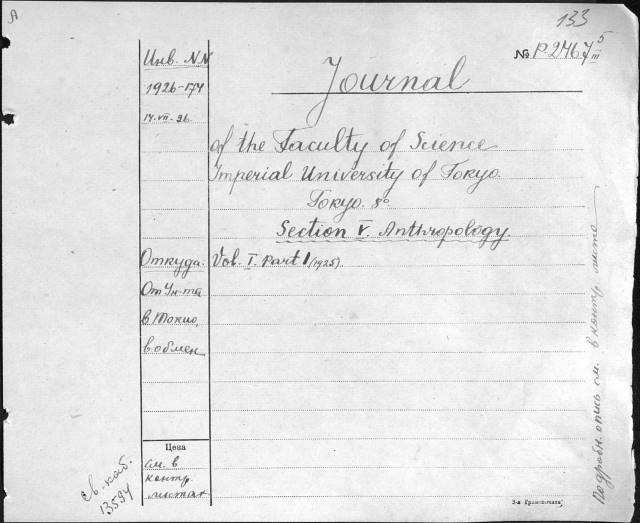 A
133
№ P2467 5/III
Journal
Инв. NN
1926-174
14.VII-26.
of the Faculty of Science
Imperial University of Tokyo.
Tokyo. 8°
Section V. Anthropology.
Откуда: Vol. I. Part 1 (1925).
От Ун-та
в Токио,
в обмен
Цена
см. в
контр.
листах
Ев. каб.
13594
Подробн. опись см. в контр. листа
3-я Гряковская,